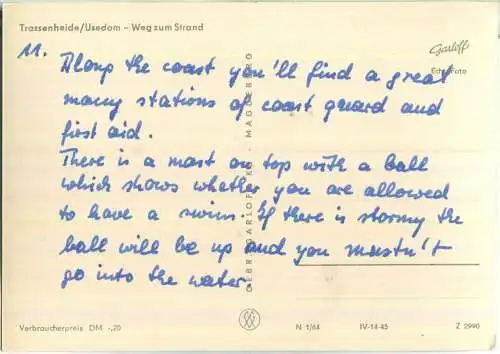 Trassenheide/Usedom – Weg zum Strand
Garloff
Echt Foto
11.
Along the coast you'll find a great
many stations of coast guard and
first aid.
There is a mast on top with a ball
which shows whether you are allowed
to have a swim. If there is stormy the
ball will be up and you mustn't
go into the water.
GEBR. GARLOFF KG - MAGDEBURG
Verbraucherpreis DM -,20
N 1/64
IV-14-45
Z 2990